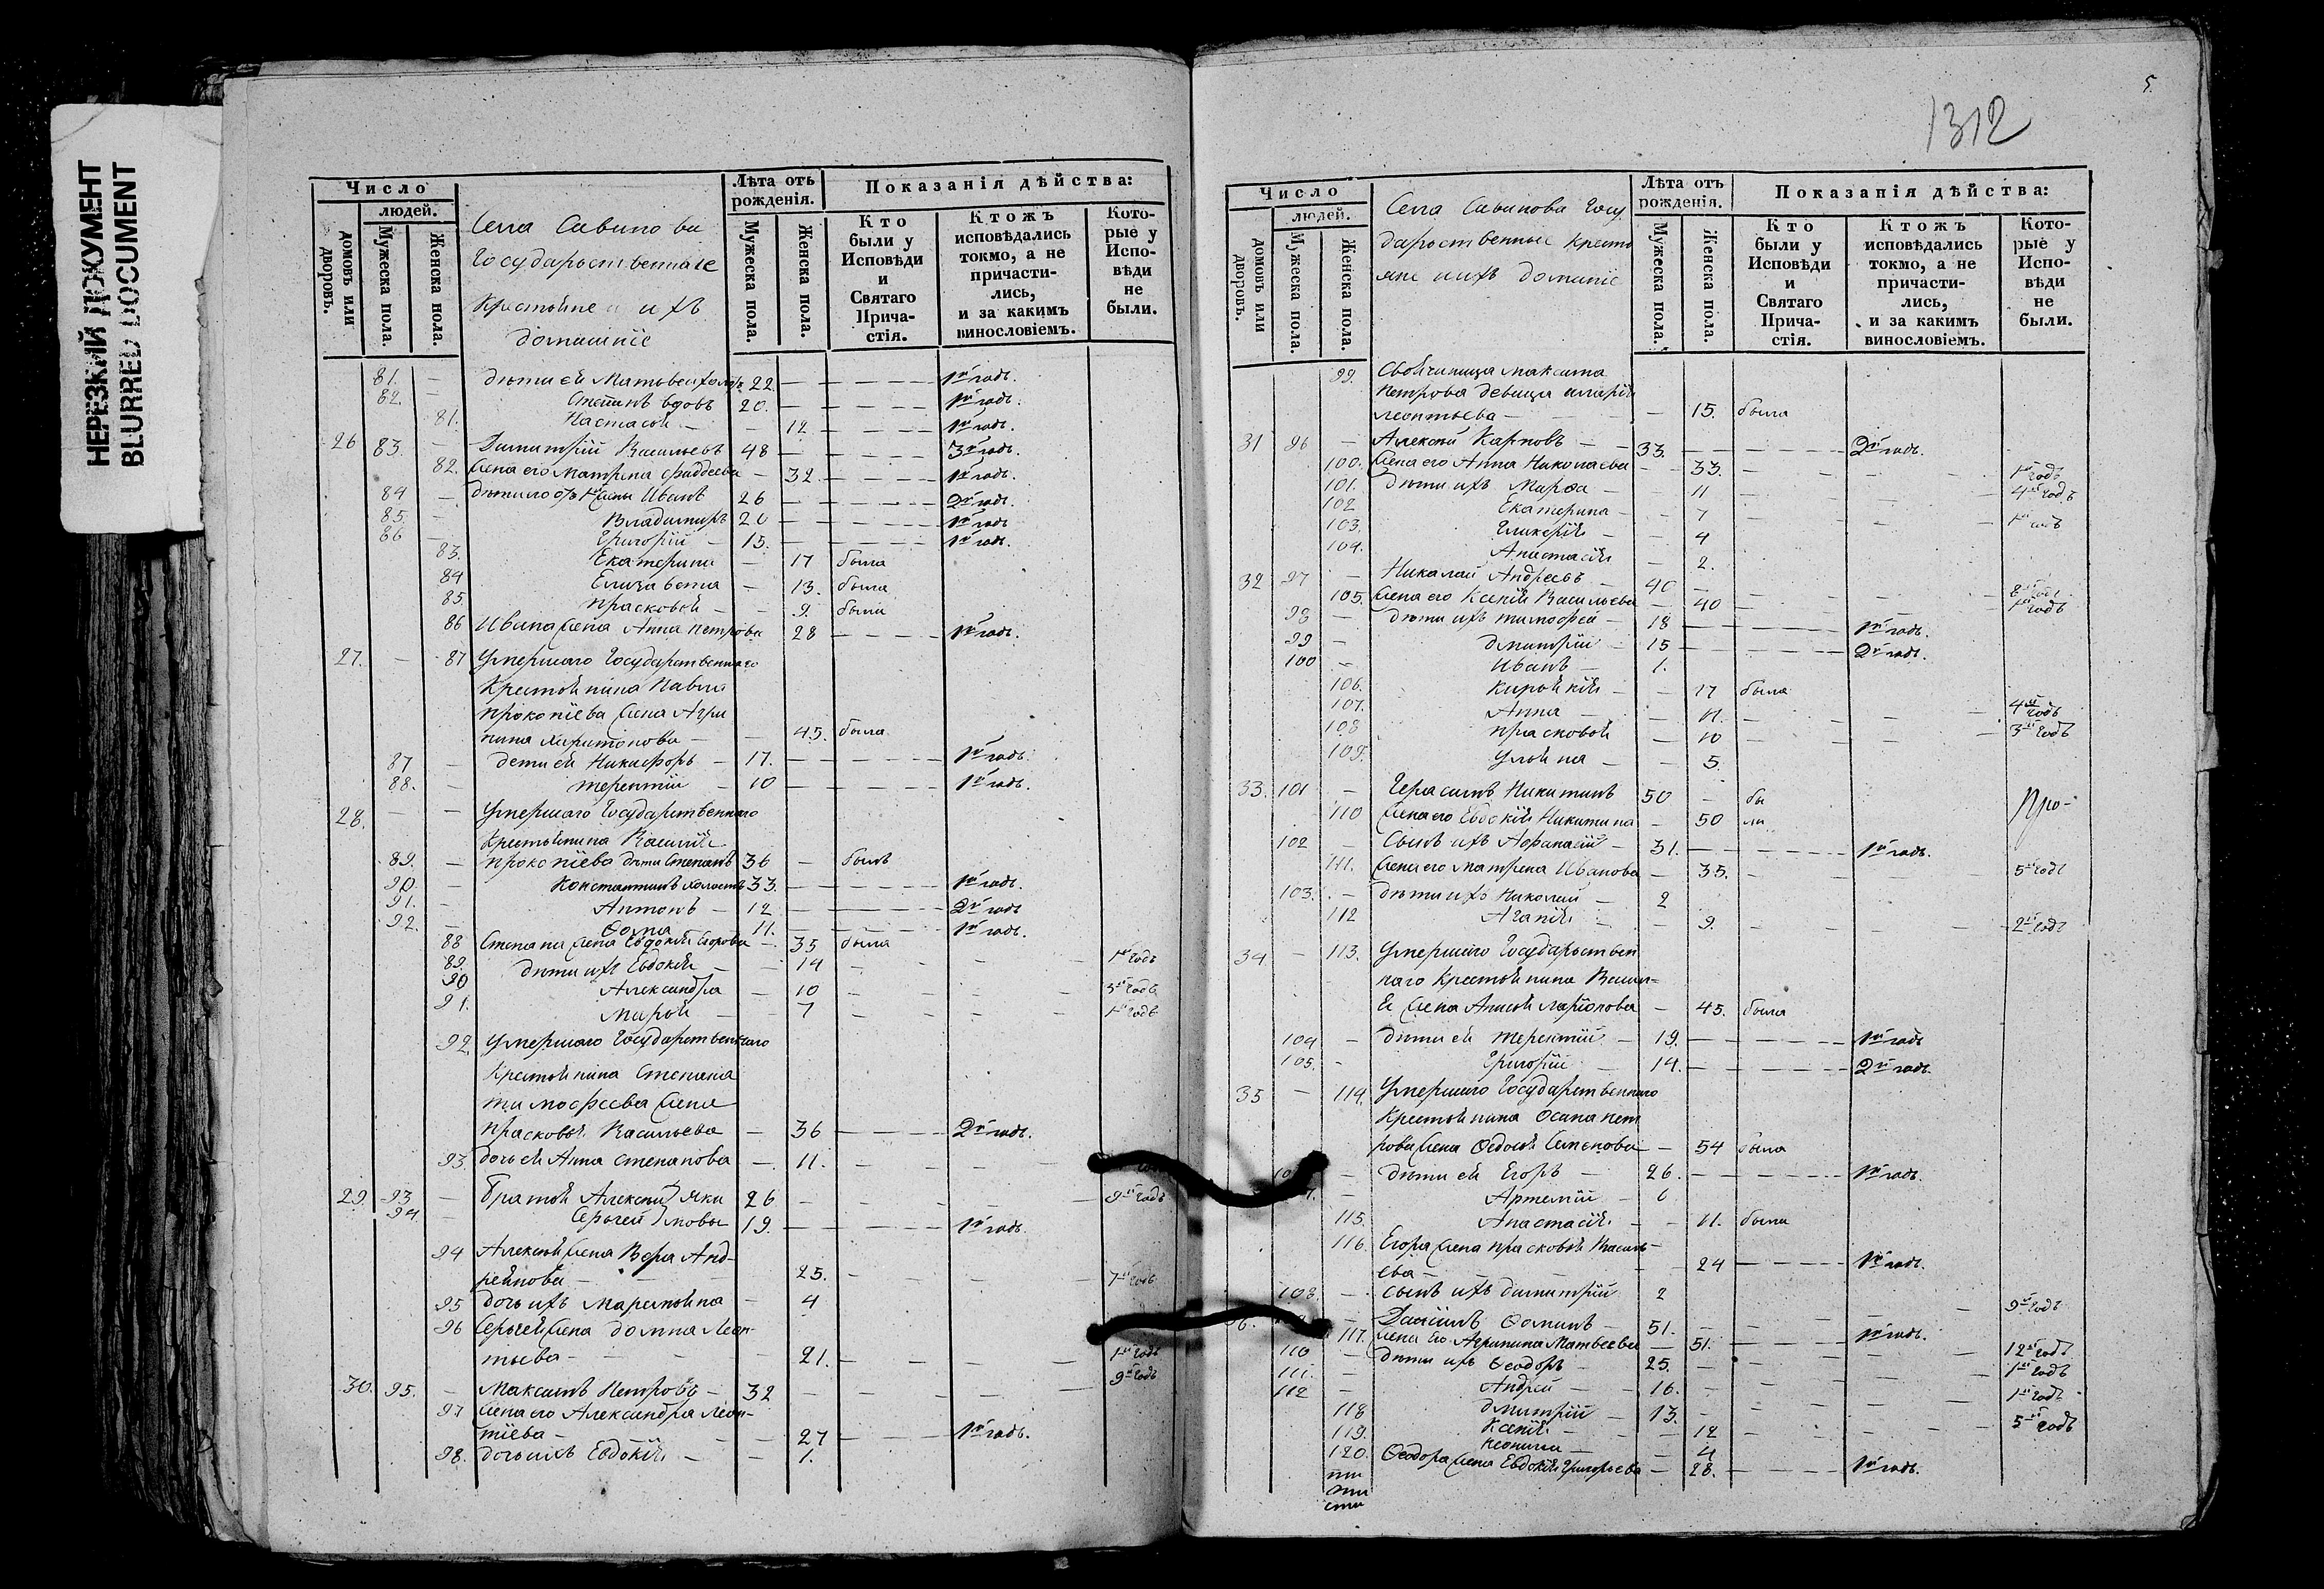 НЕРЕЗКИЙ ДОКУМЕНТ
BLURRED DOCUMENT
Число
людей.
домовъ или дворовъ.
Мужеска пола.
Женска пола.
Села Савинова
Государственные
Крестьяне и ихъ
домашніе
Лѣта отъ рожденія.
Мужеска пола.
Женска пола.
Показанія дѣйства:
Кто были у Исповѣди и Святаго Прича-стія.
Ктожъ исповѣдались токмо, а не причасти-лись, и за какимъ винословіемъ.
Кото-рые у Испо-вѣди не были.
81. — дѣти ей Матвей 22. — 1й годъ.
82. — вдовъ 20. — 1й годъ.
81. Настасья — 12 — 1й годъ.
26 83. — Димитрій Васильевъ 48 — 3й годъ.
82. Жена его Матрена Фаддеева — 32. — 1й годъ.
84 — дѣти его отъ 1й жены Иванъ 26 — 2й годъ.
85. — Владимиръ 20 — 1й годъ
86 — Григорій — 15. — 1й годъ.
83. Екатерина — 17 была
84 Елизавета — 13. была
85. Прасковья — 9. была
86 Ивана жена Анна Петрова 28 — 1й годъ.
27. — 87 Умершаго Государственнаго
Крестьянина Павла
Прокопіева жена Агри
пина Харитонова — 45. была
87 — дети ей Никифоръ — 17. — 1й годъ.
88. — Терентій — 10 — 1й годъ.
28. — — Умершаго Государственнаго
Крестьянина Василія
89. — Прокопіева дѣти Степанъ 36 — былъ
90. — Константинъ холостъ 33. — 1й годъ.
91. — Антонъ — 12 — 2й годъ
92. — Ѳома 11. — 1й годъ.
88 Степана жена Евдокія Егорова — 35 была
89. дѣти ихъ Евдокія — 14 — 1й годъ
90 Александра — 10 — 3й годъ
91. Марья — 7 — 1й годъ
92. Умершаго Государственнаго
Крестьянина Степана
Тимофеева жена
Прасковья Васильева — 36 — 2й годъ.
93. дочь ей Анна Степанова — 11. —
29. 93 — Братья Алексѣй Яки 26 — 9й годъ
94 — Сергей мовы 19. — 1й годъ
94 Алексѣя жена Вера Анд-
реянова — 25. — 7й годъ
95 дочь ихъ Маремьяна — 4
96 Сергея жена Домна Леон-
тьева — 21. — 1й годъ
30. 95. — Максимъ Петровъ — 32 — 9й годъ
97 Жена его Александра Леон-
тіева — 27 — 1й годъ.
98. дочь ихъ Евдокія — 1.
5.
1312
Число
людей.
домовъ или дворовъ.
Мужеска пола.
Женска пола.
Села Савинова Госу
дарственные Кресть
яне и ихъ домашніе
Лѣта отъ рожденія.
Мужеска пола.
Женска пола.
Показанія дѣйства:
Кто были у Исповѣди и Святаго Прича-стія.
Ктожъ исповѣдались токмо, а не причасти-лись, и за какимъ винословіемъ.
Кото-рые у Испо-вѣди не были.
99. Своячиница Максима
Петрова девица Марія
Леонтьева — 15. была
31 96 — Алексѣй Карповъ — 33. — 2й годъ.
100. Жена его Анна Николаева — 33. — 1й годъ
101. дѣти ихъ Марѳа — 11 — 4й годъ
102 Екатерина — 7 — 1й годъ
103. Гликерія — 4
104. Анастасія 2.
32 97 — Николай Андреевъ — 40 — годъ
105. Жена его Ксенія Васильева — 40 — 1й годъ
98 — дѣти ихъ Тимофей — 18 — 1й годъ.
99 — Дмитрій — 15 — 2й годъ.
100 — Иванъ — 1.
106. — 17 была
107. Анна — 11. — 4й годъ
108 Прасковья — 10 — 3й годъ
109. Ульяна — 5.
33. 101 — Герасимъ Никитинъ 50 — бы
110 Жена его Евдокія Никитина — 50 ли
Про-
102 — Сынъ ихъ Афанасій — 31. — 1й годъ.
111. Жена его Матрена Иванова — 35. — 5й годъ
103. — дѣти ихъ Николай — 2
112 Агапія — 9. — 2й годъ
34 — 113. Умершаго Государствен
наго Крестьянина Васил-
я жена Анисья Ларіонова — 45. была
104 — дѣти ей Терентій — 19. — 1й годъ
105. — Григорій — 14. — 2й годъ.
35 — 114. Умершаго Государственнаго
Крестьянина Осипа Пет
рова жена Ѳедосья Семенова — 54 была
— дѣти ей Егоръ — 26. — 1й годъ.
— Артемій — 6
115. Анастасія — 11. была
116. Егора жена Прасковья Василь-
ева — 24 — 1й годъ.
108. — сынъ ихъ Димитрій 2
— Ѳоминъ — 51. — 9й годъ
117. Жена его Агрипина Матвеева — 51. — 1й годъ.
110 — дѣти ихъ Ѳеодоръ — 25. — 12й годъ
111. — Андрей — 16. — 1й годъ
112 — Дмитрій — 13. — 1й годъ
118 Ксенія — 12 — 5й годъ
119. — 4
120. Ѳеодора жена Евдокія Григорьева — 28. — 1й годъ.